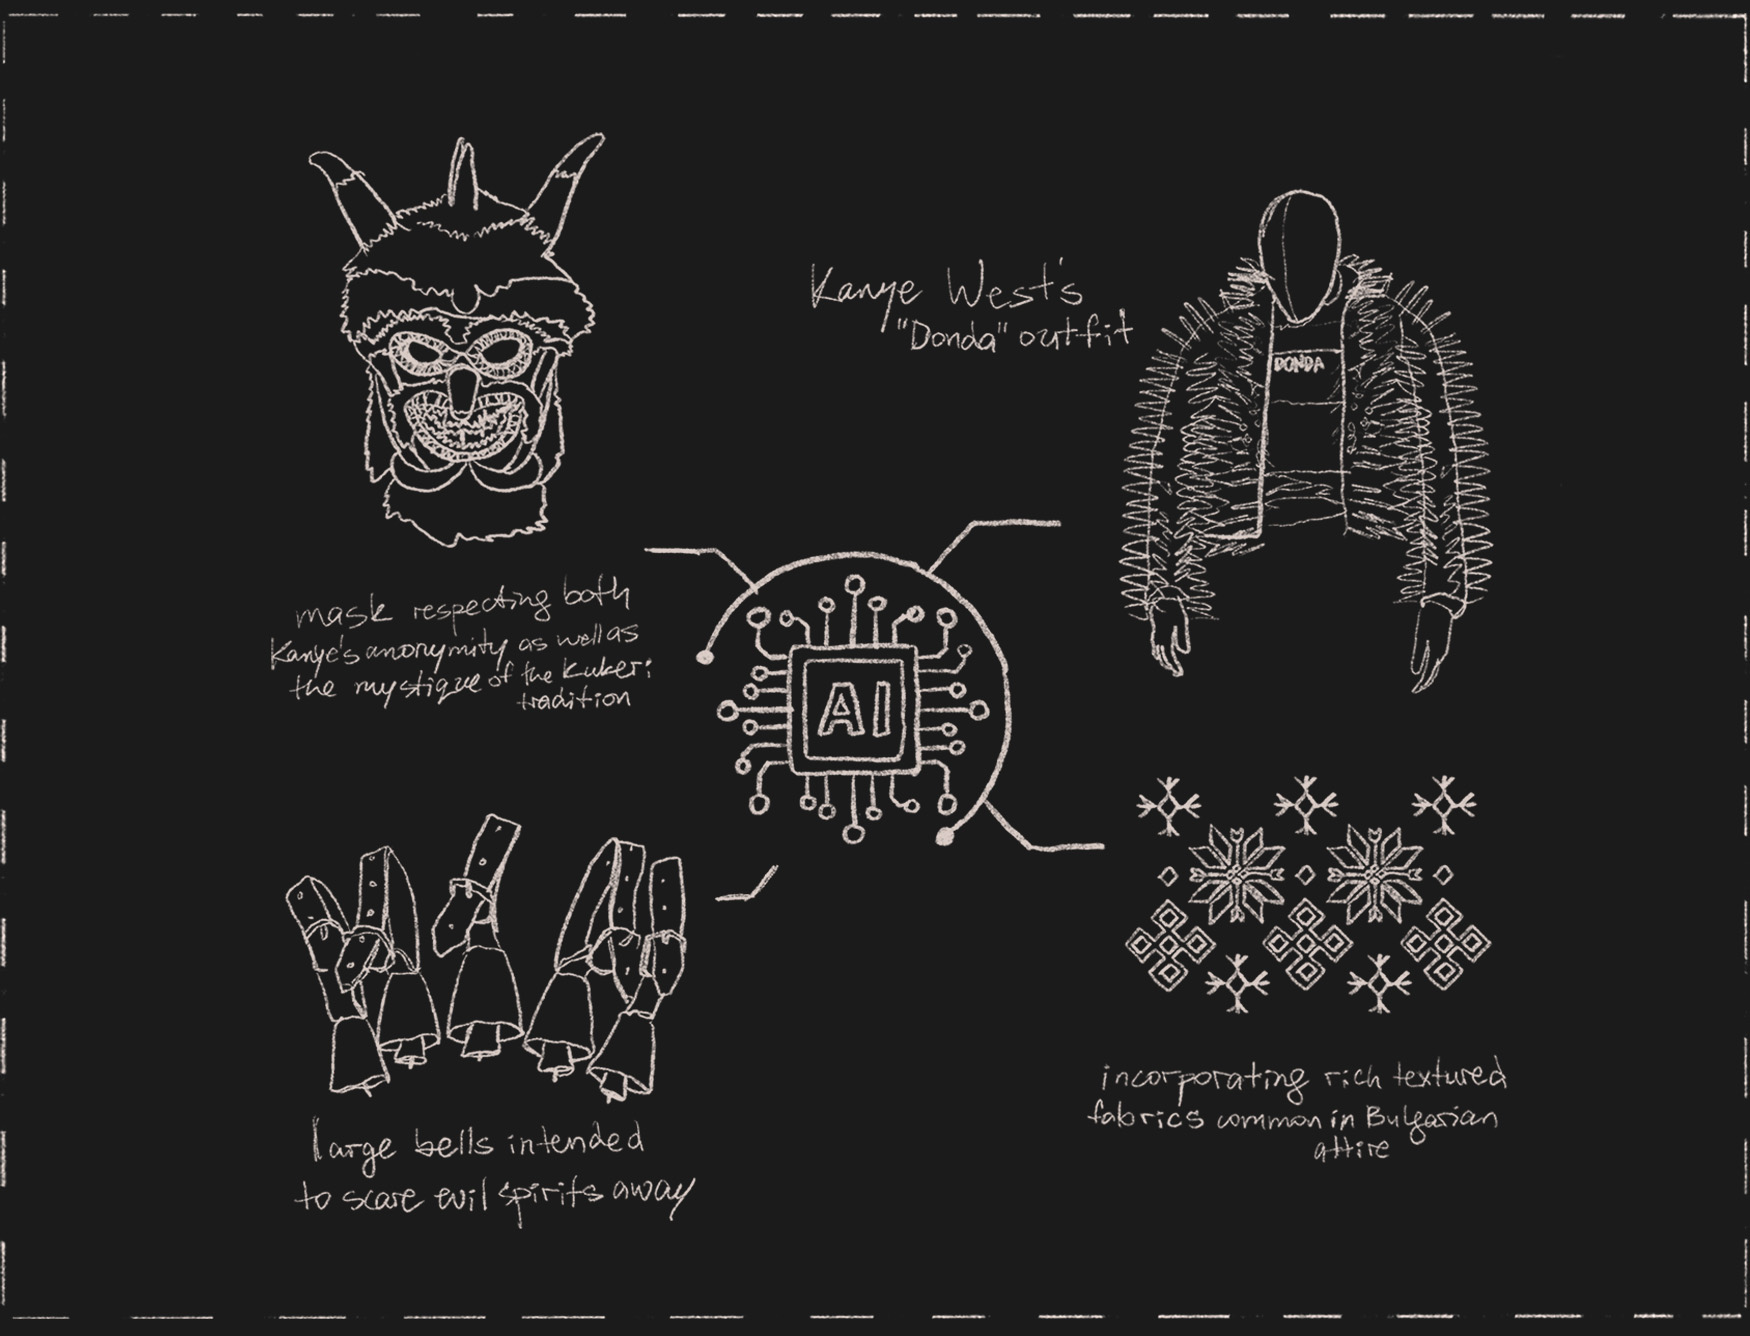 Kanye West's
"Donda" outfit
DONDA
mask respecting both
Kanye's anonymity as well as
the mystique of the Kukeri
tradition
AI
large bells intended
to scare evil spirits away
incorporating rich textured
fabrics common in Bulgarian
attire